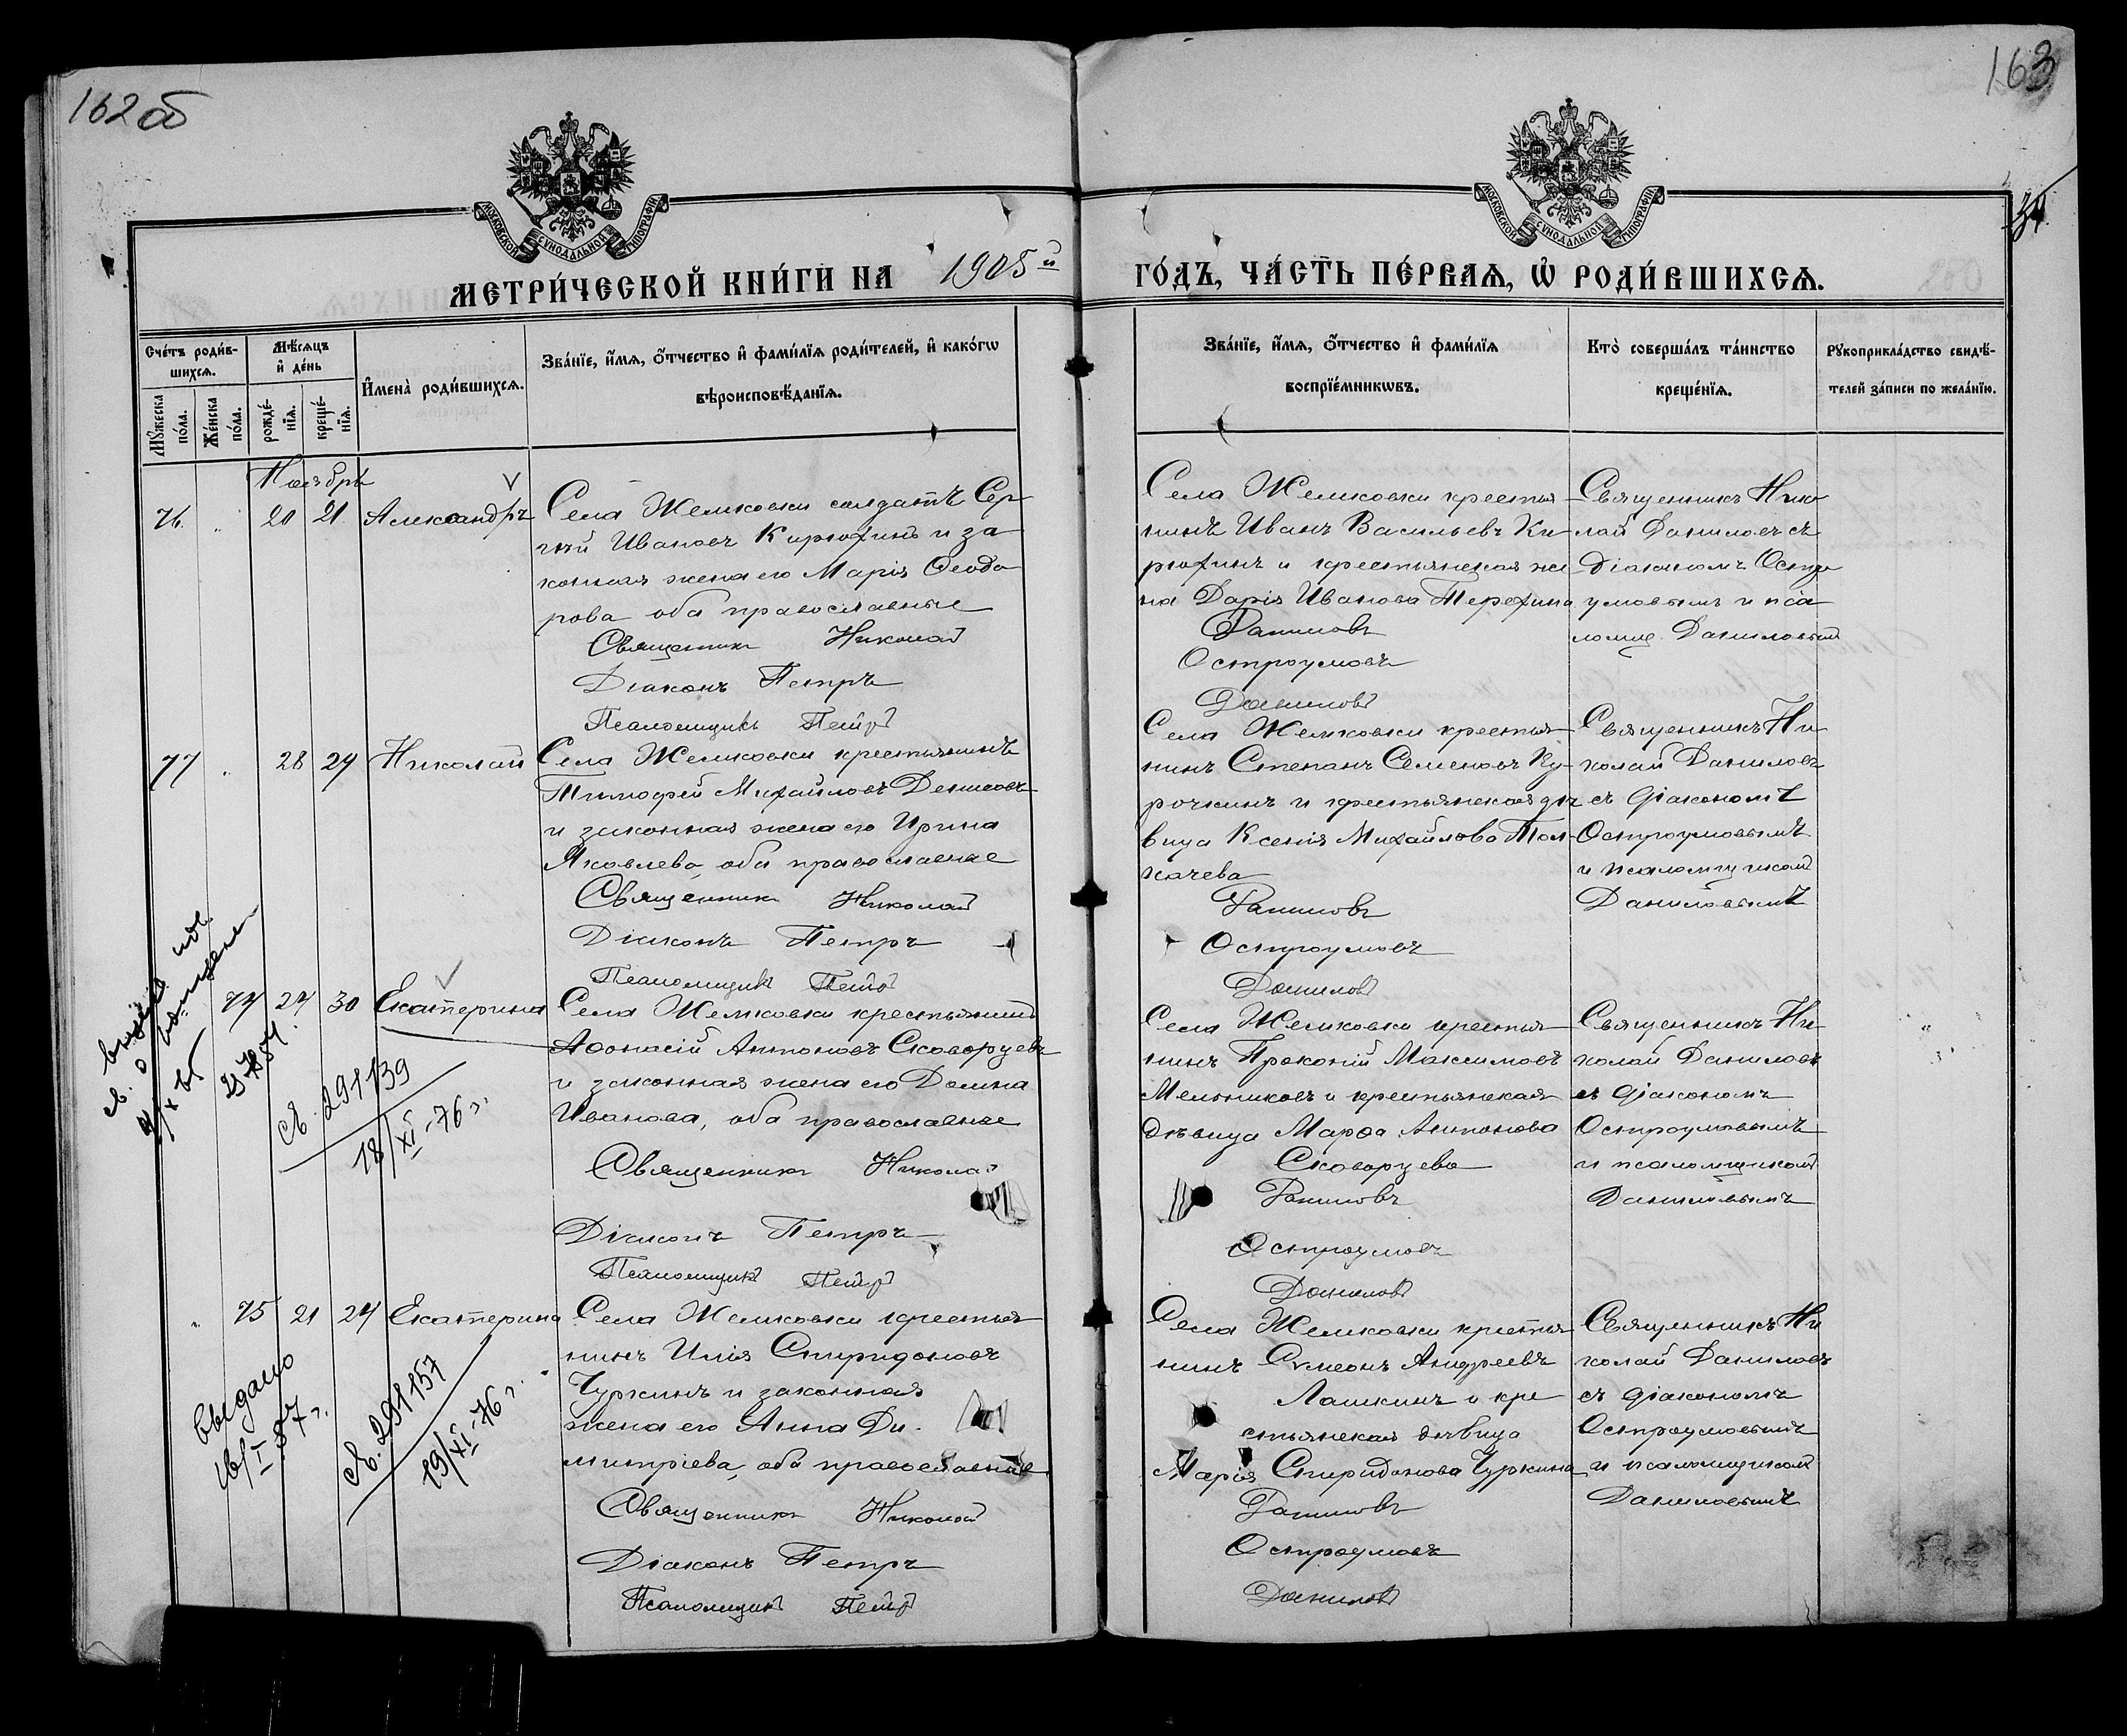 162 об
163
34
МОСКОВСКОЙ СѴНОДАЛЬНОЙ ТИПОГРАФІИ
МОСКОВСКОЙ СѴНОДАЛЬНОЙ ТИПОГРАФІИ
МЕТРИ́ЧЕСКОЙ КНИ́ГИ НА 1905й ГО́ДЪ, ЧА́СТЬ ПЕ́РВАѦ, Ѡ҆ РОДИ́ВШИХСѦ.
Сче́тъ роди́в-
шихсѧ.
Мꙋ́жеска
по́ла.
Же́нска
по́ла.
Мѣ́сѧцъ
и҆ де́нь
рожде́-
нїѧ.
креще́-
нїѧ.
И҆мена̀ роди́вшихсѧ.
Зва́нїе, и҆́мѧ, ѻ҆́тчество и҆ фами́лїѧ роди́телей, и҆ како́гѡ
вѣроисповѣ́данїѧ.
Зва́нїе, и҆́мѧ, ѻ҆́тчество и҆ фами́лїѧ
воспрїе́мникѡвъ.
Кто̀ соверша́лъ та́инство
креще́нїѧ.
Рꙋкоприкла́дство свидѣ́-
телей за́писи по жела́нїю.
Ноябрь
76. „ 20 21 Александръ
Села Жемковки солдатъ Сер-
гѣй Ивановъ Кирюхинъ и за
конная жена его Марія Ѳеодо
рова оба православные
Священникъ Николай
Діаконъ Петръ
Псаломщикъ Петръ
Села Жемковки крестья-
нинъ Иванъ Васильевъ Ки-
рюхинъ и крестьянская же
на Дарія Иванова Терехина
Даниловъ
Остроумовъ
Даниловъ
Священникъ Нико
лай Даниловъ съ
Діакономъ Остро
умовымъ и пса
ломщ. Даниловымъ
77 „ 28 29 Николай
Села Жемковки крестьянинъ
Тимофей Михайловъ Денисовъ
и законная жена его Ирина
Яковлева, оба православные
Священникъ Николай
Діаконъ Петръ
Псаломщикъ Петръ
Села Жемковки крестья-
нинъ Степанъ Семеновъ Ку-
рочкинъ и крестьянская дѣ
вица Ксенія Михайлова Тол-
качева
Даниловъ
Остроумовъ
Даниловъ
Священникъ Ни-
колай Даниловъ
съ діакономъ
Остроумовымъ
и псаломщикомъ
Даниловымъ
30 Екатерина
Села Жемковки крестьянинъ
Аѳонасій Антоновъ Сковорцевъ
и законная жена его Домна
Иванова, оба православные
Священникъ Николай
Діаконъ Петръ
Псаломщикъ Петръ
Села Жемковки крестья-
нинъ Прокопій Максимовъ
Мельниковъ и крестьянская
дѣвица Марѳа Антонова
Сковорцева
Даниловъ
Остроумовъ
Даниловъ
Священникъ Ни-
колай Даниловъ
съ діакономъ
Остроумовымъ
и псаломщикомъ
Даниловымъ
св. 291139
18/XI-76 г.
„ 75 21 24 Екатерина
Села Жемковки крестья
нинъ Илія Спиридоновъ
Чуркинъ и законная
жена его Анна Ди-
митріева, оба православные
Священникъ Николай
Діаконъ Петръ
Псаломщикъ Петръ
Села Жемковки крестья
нинъ Сѵмеонъ Андреевъ
Лашкинъ и кре
стьянская дѣвица
Марія Спиридонова Чуркина
Даниловъ
Остроумовъ
Даниловъ
Священникъ Ни
колай Даниловъ
съ діакономъ
Остроумовымъ
и псаломщикомъ
Даниловымъ
Выдано
16/I-57 г.
св. 291157
19/XI-76 г.